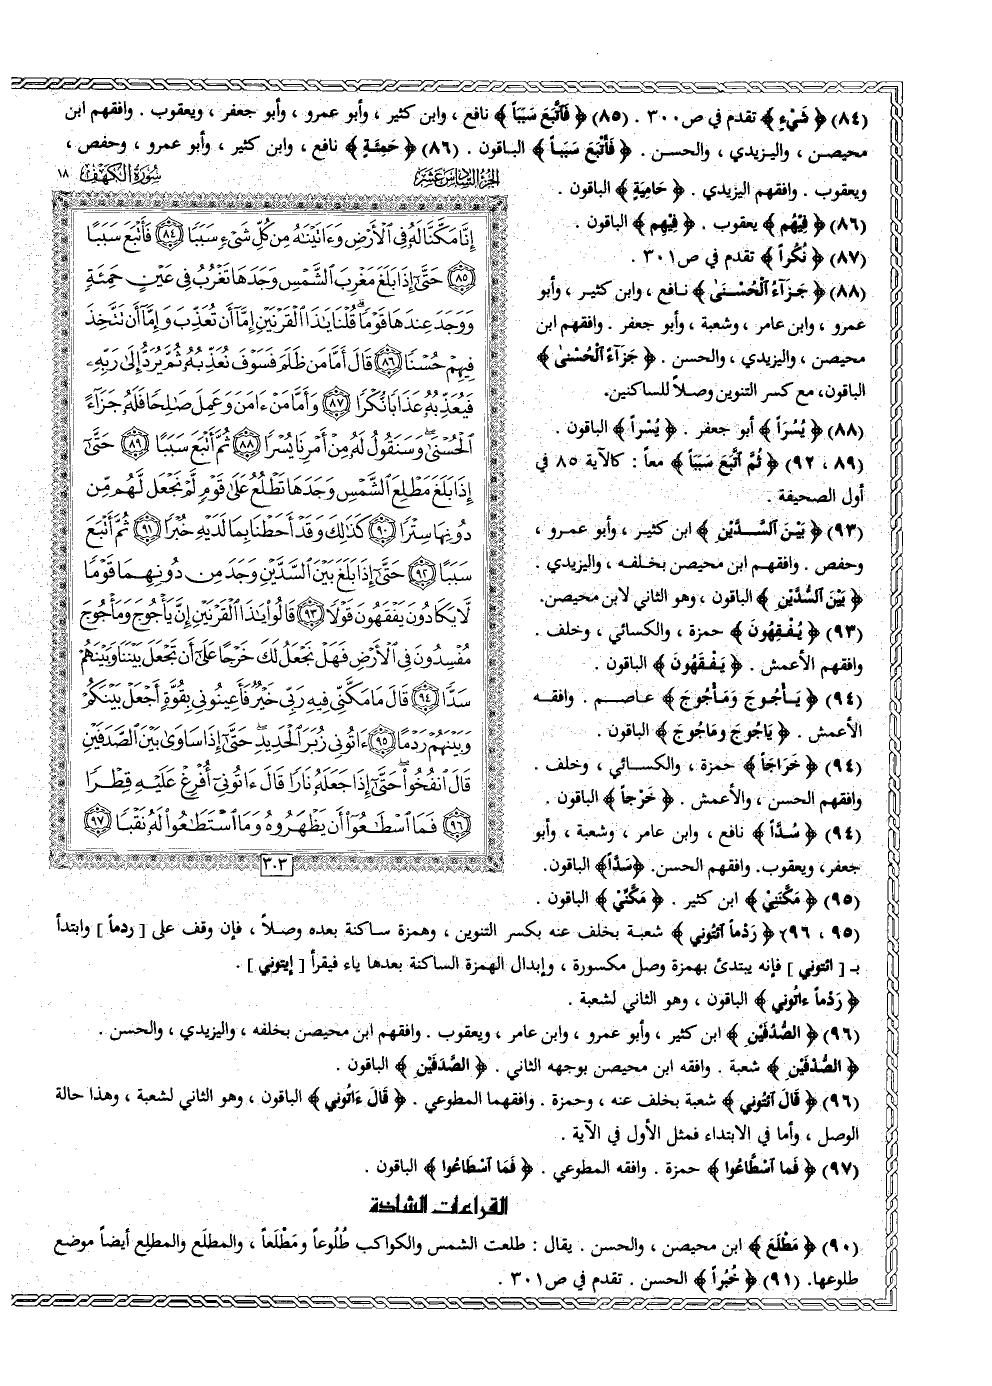 (٨٤) ﴿ شَيْءٍ ﴾ تقدم في ص٣٠٠ . (٨٥) ﴿ فَاتَّبَعَ سَبَباً ﴾ نافع ، وابن كثير ، وأبو عمرو ، وأبو جعفر ، ويعقوب . وافقهم ابن
محيصن ، واليزيدي ، والحسن . ﴿ فَأَتْبَعَ سَبَباً ﴾ الباقون . (٨٦) ﴿ حَمِئَةٍ ﴾ نافع ، وابن كثير ، وأبو عمرو ، وحفص ،
ويعقوب . وافقهم اليزيدي . ﴿ حَامِيَةٍ ﴾ الباقون .
(٨٦) ﴿ فِيْهُم ﴾ يعقوب . ﴿ فِيْهِم ﴾ الباقون .
(٨٧) ﴿ نُكُراً ﴾ تقدم في ص٣٠١ .
(٨٨) ﴿ جَـزَاءُ الْحُسْـنَىٰ ﴾ نـافع ، وابن كثـير ، وأبو
عمرو ، وابن عامر ، وشعبة ، وأبو جعفر . وافقهم ابن
محيصن ، واليزيدي ، والحسن . ﴿ جَزَاءً الْحُسْنَىٰ ﴾
الباقون، مع كسر التنوين وصلاً للساكنين.
(٨٨) ﴿ يُسُرَاً ﴾ أبو جعفر . ﴿ يُسْراً ﴾ الباقون .
(٨٩ ، ٩٢) ﴿ ثُمَّ اتَّبَعَ سَبَباً ﴾ معاً : كالآية ٨٥ في
أول الصحيفة .
(٩٣) ﴿ بَيْنَ السَّـدَّيْنِ ﴾ ابن كثـير ، وأبو عمـرو ،
وحفص . وافقهـم ابن محيصن بخلفـه ، واليزيدي .
﴿ بَيْنَ السُّدَّيْنِ ﴾ الباقون ، وهو الثاني لابن محيصن.
(٩٣) ﴿ يُـفْـقِهُونَ ﴾ حمزة ، والكسائي ، وخلف .
وافقهم الأعمش . ﴿ يَـفْـقَهُونَ ﴾ الباقون .
(٩٤) ﴿ يَـأْجُـوجَ وَمَـأْجُوجَ ﴾ عـاصـم . وافقـه
الأعمش . ﴿ يَاجُوجَ ومَاجُوجَ ﴾ الباقون .
(٩٤) ﴿ خَرَاجَاً ﴾ حمزة ، والكسائي ، وخلف .
وافقهم الحسن ، والأعمش . ﴿ خَرْجاً ﴾ الباقون .
(٩٤) ﴿ سُـدّاً ﴾ نافع ، وابن عامر ، وشعبة ، وأبو
جعفر، ويعقوب. وافقهم الحسن. ﴿سَدّاً﴾ الباقون.
(٩٥) ﴿ مَكَّنَنِيْ ﴾ ابن كثير . ﴿ مَكَّنِّيْ ﴾ الباقون .
الجزء السادس عشر
سورة الكهف ١٨
إِنَّا مَكَّنَّا لَهُۥ فِى ٱلْأَرْضِ وَءَاتَيْنَٰهُ مِن كُلِّ شَىْءٍ سَبَبًا ٨٤ فَأَتْبَعَ سَبَبًا
٨٥ حَتَّىٰٓ إِذَا بَلَغَ مَغْرِبَ ٱلشَّمْسِ وَجَدَهَا تَغْرُبُ فِى عَيْنٍ حَمِئَةٍ
وَوَجَدَ عِندَهَا قَوْمًا ۗ قُلْنَا يَٰذَا ٱلْقَرْنَيْنِ إِمَّآ أَن تُعَذِّبَ وَإِمَّآ أَن تَتَّخِذَ
فِيهِمْ حُسْنًا ٨٦ قَالَ أَمَّا مَن ظَلَمَ فَسَوْفَ نُعَذِّبُهُۥ ثُمَّ يُرَدُّ إِلَىٰ رَبِّهِۦ
فَيُعَذِّبُهُۥ عَذَابًا نُّكْرًا ٨٧ وَأَمَّا مَنْ ءَامَنَ وَعَمِلَ صَٰلِحًا فَلَهُۥ جَزَآءً
ٱلْحُسْنَىٰ ۖ وَسَنَقُولُ لَهُۥ مِنْ أَمْرِنَا يُسْرًا ٨٨ ثُمَّ أَتْبَعَ سَبَبًا ٨٩ حَتَّىٰٓ
إِذَا بَلَغَ مَطْلِعَ ٱلشَّمْسِ وَجَدَهَا تَطْلُعُ عَلَىٰ قَوْمٍ لَّمْ نَجْعَل لَّهُم مِّن
دُونِهَا سِتْرًا ٩٠ كَذَٰلِكَ وَقَدْ أَحَطْنَا بِمَا لَدَيْهِ خُبْرًا ٩١ ثُمَّ أَتْبَعَ
سَبَبًا ٩٢ حَتَّىٰٓ إِذَا بَلَغَ بَيْنَ ٱلسَّدَّيْنِ وَجَدَ مِن دُونِهِمَا قَوْمًا
لَّا يَكَادُونَ يَفْقَهُونَ قَوْلًا ٩٣ قَالُوا۟ يَٰذَا ٱلْقَرْنَيْنِ إِنَّ يَأْجُوجَ وَمَأْجُوجَ
مُفْسِدُونَ فِى ٱلْأَرْضِ فَهَلْ نَجْعَلُ لَكَ خَرْجًا عَلَىٰٓ أَن تَجْعَلَ بَيْنَنَا وَبَيْنَهُمْ
سَدًّا ٩٤ قَالَ مَا مَكَّنِّى فِيهِ رَبِّى خَيْرٌ فَأَعِينُونِى بِقُوَّةٍ أَجْعَلْ بَيْنَكُمْ
وَبَيْنَهُمْ رَدْمًا ٩٥ ءَاتُونِى زُبَرَ ٱلْحَدِيدِ ۖ حَتَّىٰٓ إِذَا سَاوَىٰ بَيْنَ ٱلصَّدَفَيْنِ
قَالَ ٱنفُخُوا۟ ۖ حَتَّىٰٓ إِذَا جَعَلَهُۥ نَارًا قَالَ ءَاتُونِىٓ أُفْرِغْ عَلَيْهِ قِطْرًا
٩٦ فَمَا ٱسْطَٰعُوٓا۟ أَن يَظْهَرُوهُ وَمَا ٱسْتَطَٰعُوا۟ لَهُۥ نَقْبًا ٩٧
٣٠٣
(٩٥ ، ٩٦) ﴿ رَدْماً ائتُوني ﴾ شعبة بخلف عنه بكسر التنوين ، وهمزة ساكنة بعده وصلاً ، فإن وقف على [ ردما ] وابتدأ
بـ [ ائتوني ] فإنه يبتدئ بهمزة وصل مكسورة ، وإبدال الهمزة الساكنة بعدها ياء فيقرأ [ إيتوني ] .
﴿ رَدْماً ءاتُوني ﴾ الباقون ، وهو الثاني لشعبة .
(٩٦) ﴿ الصُّدُفَيْنِ ﴾ ابن كثير ، وأبو عمرو ، وابن عامر ، ويعقوب . وافقهم ابن محيصن بخلفه ، واليزيدي ، والحسن .
﴿ الصُّدْفَيْنِ ﴾ شعبة . وافقه ابن محيصن بوجهه الثاني . ﴿ الصَّدَفَيْنِ ﴾ الباقون .
(٩٦) ﴿ قَالَ ائتُوني ﴾ شعبة بخلف عنه ، وحمزة . وافقهما المطوعي . ﴿ قَالَ ءَاتُوني ﴾ الباقون ، وهو الثاني لشعبة ، وهذا حالة
الوصل ، وأما في الابتداء فمثل الأول في الآية .
(٩٧) ﴿ فَما اسْطَّاعُوا ﴾ حمزة . وافقه المطوعي . ﴿ فَمَا اسْطَاعُوا ﴾ الباقون .
القراءات الشاذة
(٩٠) ﴿ مَطْلَعَ ﴾ ابن محيصن ، والحسن . يقال : طلعت الشمس والكواكب طُلُوعاً ومَطْلَعاً ، والمطلَع والمطلِع أيضاً موضع
طلوعها. (٩١) ﴿ خُبُراً ﴾ الحسن . تقدم في ص٣٠١ .